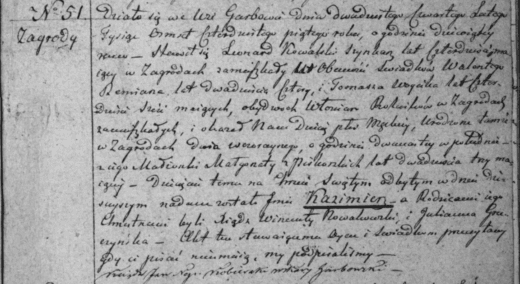 No 51.
Zagrody
Działo się we Wsi Garbowie Dnia dwudziestego czwartego Lutego
Tysiąc Ośmset czterdziestego piątego roku, o godzinie dziewiątey
rano – Stawił się Leonard Kowalski szynkarz lat czterdzieści ma
iący w Zagrodach zamieszkały w Obecności Świadków Walentego
Ziemiana lat dwadzieścia cztery, i Tomasza Wóycika lat czter
dzieści sześć maiących, obydwóch Włościan Rolników w Zagrodach
zamieszkałych, i okazał Nam Dziecię płci Męzkiey, urodzone
w Zagrodach dnia wczorayszego, o godzinie dwunastey w południe –
z iego Małżonki Małgorzaty z lat dwadzieścia trzy ma
iącey – Dziecięciu temu na Chrzcie Świętym odbytym w dniu dzi
sieyszym nadane zostało Imie Kazimierz a Rodzicami iego
Chrzestnemi byli Xiądz Wincenty Kowalewski, i Julianna
– Akt ten stawaiącemu Oycu i świadkom przeczytany
gdy ci pisać nieumieią, my podpisaliśmy –
Xiądz Jan Garbowski –